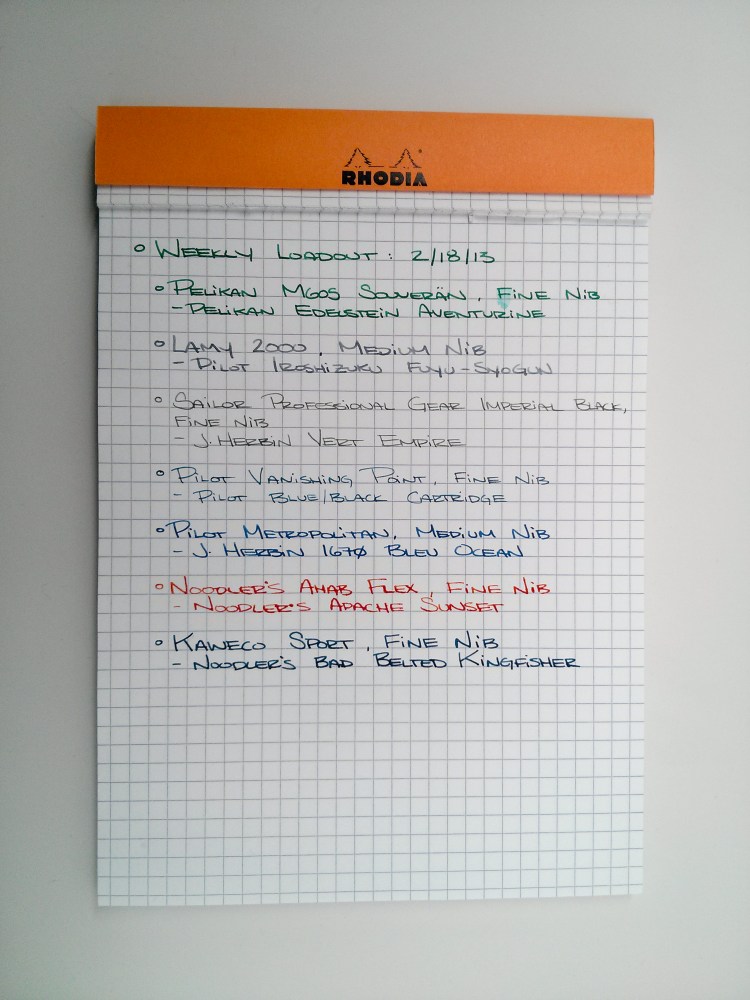 RHODIA
WEEKLY LOADOUT: 2/18/13
PELIKAN M605 SOUVERÄN, FINE NIB
- PELIKAN EDELSTEIN AVENTURINE
LAMY 2000, MEDIUM NIB
- PILOT IROSHIZUKU FUYU-SYOGUN
SAILOR PROFESSIONAL GEAR IMPERIAL BLACK,
FINE NIB
- J. HERBIN VERT EMPIRE
PILOT VANISHING POINT, FINE NIB
- PILOT BLUE/BLACK CARTRIDGE
PILOT METROPOLITAN, MEDIUM NIB
- J. HERBIN 1670 BLEU OCEAN
NOODLER'S AHAB FLEX, FINE NIB
- NOODLER'S APACHE SUNSET
KAWECO SPORT, FINE NIB
- NOODLER'S BAD BELTED KINGFISHER